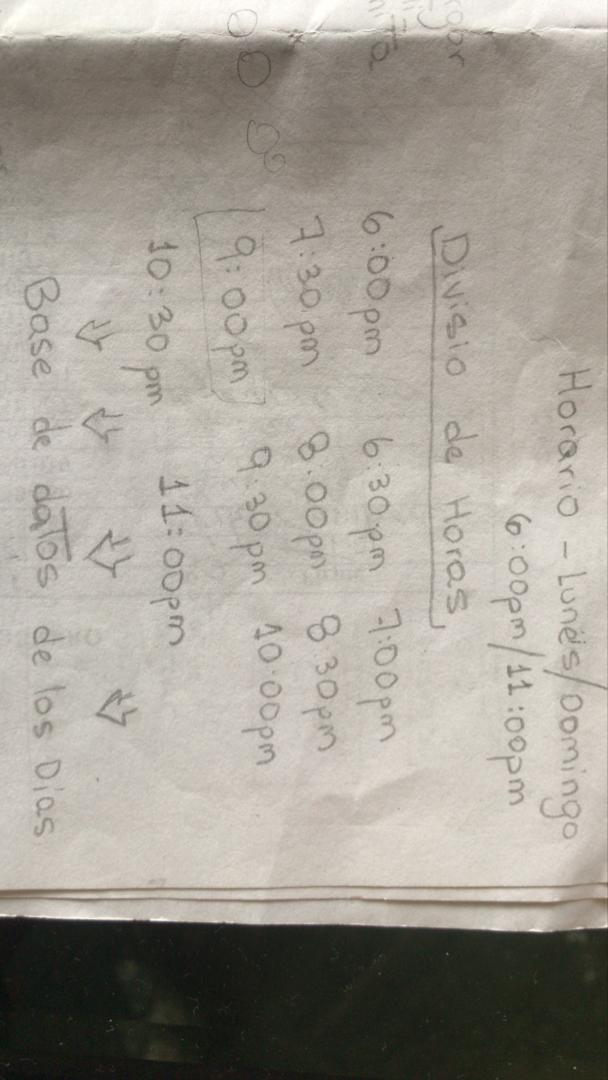 Horario - Lunes/Domingo
6:00pm/11:00pm
Divisio de Horas
6:00pm 6:30pm 7:00pm
7:30pm 8:00pm 8:30pm
9:00pm 9:30pm 10:00pm
10:30pm 11:00pm
Base de datos de los Días